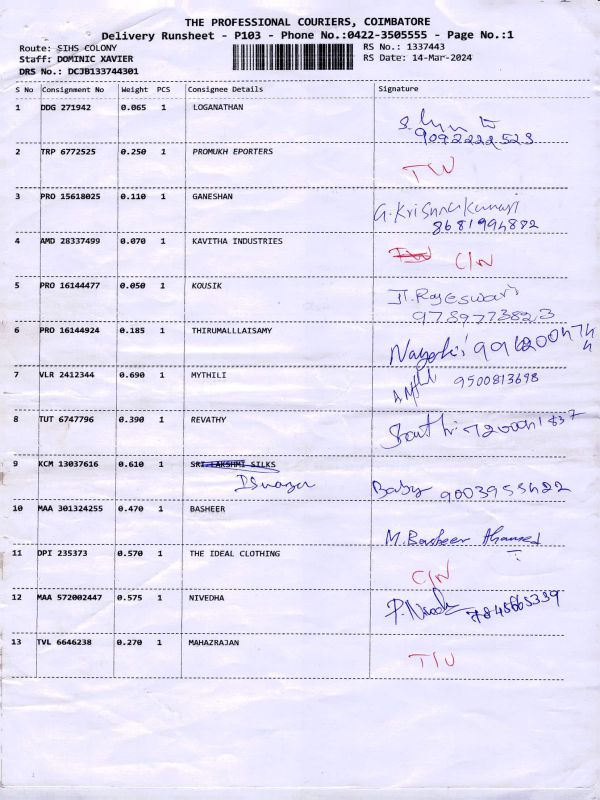 THE PROFESSIONAL COURIERS, COIMBATORE
Delivery Runsheet - P103 - Phone No.:0422-3505555 - Page No.:1
Route: SIHS COLONY RS No.: 1337443
Staff: DOMINIC XAVIER RS Date: 14-Mar-2024
DRS No.: DCJB133744301
S No Consignment No Weight PCS Consignee Details Signature
1 DDG 271942 0.065 1 LOGANATHAN
9092222523
2 TRP 6772525 0.250 1 PROMUKH EPORTERS
3 PRO 15618025 0.110 1 GANESHAN G.Krishnakumari
8681994882
4 AMD 28337499 0.070 1 KAVITHA INDUSTRIES C/N
5 PRO 16144477 0.050 1 KOUSIK Rajeswari
6 PRO 16144924 0.185 1 THIRUMALLLAISAMY
7 VLR 2412344 0.690 1 MYTHILI 9500813698
8 TUT 6747796 0.390 1 REVATHY
9 KCM 13037616 0.610 1 SRI LAKSHMI SILKS
Baby 9003955422
10 MAA 301324255 0.470 1 BASHEER
M.Basheer Ahamed
11 DPI 235373 0.570 1 THE IDEAL CLOTHING
C/N
12 MAA 572002447 0.575 1 NIVEDHA 7845665339
13 TVL 6646238 0.270 1 MAHAZRAJAN